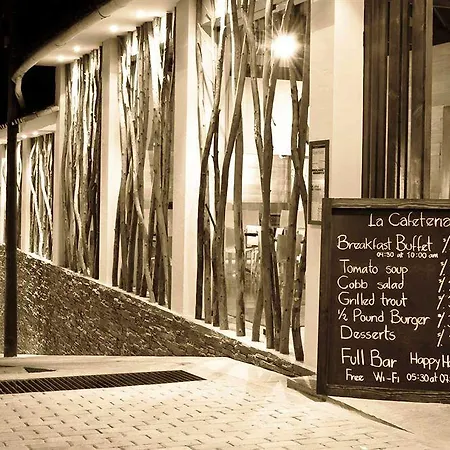 La Cafetena
Breakfast Buffet
04:30 at 10:00 am
Tomato soup
Cobb salad
Grilled trout
½ Pound Burger
Desserts
Full Bar Happy
Free Wi-Fi 05:30 at